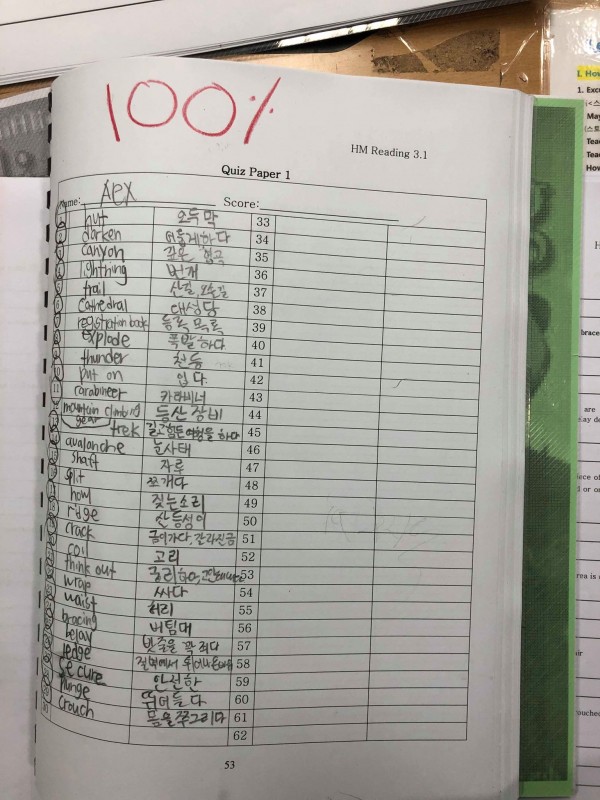 100%
HM Reading 3.1
Quiz Paper 1
Name: Alex Score:
hut 오두막 33
darken 어둡게하다 34
canyon 깊은 협곡 35
lightning 번개 36
trail 산길, 오솔길 37
cathedral 대성당 38
registration book 등록 목록 39
explode 폭발하다 40
thunder 천둥 41
put on 입다 42
carabineer 카라비너 43
mountain climbing gear 등산 장비 44
trek 길고 힘든 여행을 하다 45
avalanche 눈사태 46
shaft 자루 47
split 쪼개다 48
howl 짖는소리 49
ridge 산등성이 50
crack 금이가다, 갈라진금 51
coil 고리 52
think out 53
wrap 싸다 54
waist 허리 55
bracing 버팀대 56
belay 밧줄을 꽉 죄다 57
ledge 절벽에서 58
secure 안전한 59
plunge 뛰어들다 60
crouch 몸을쭈그리다 61
62
53